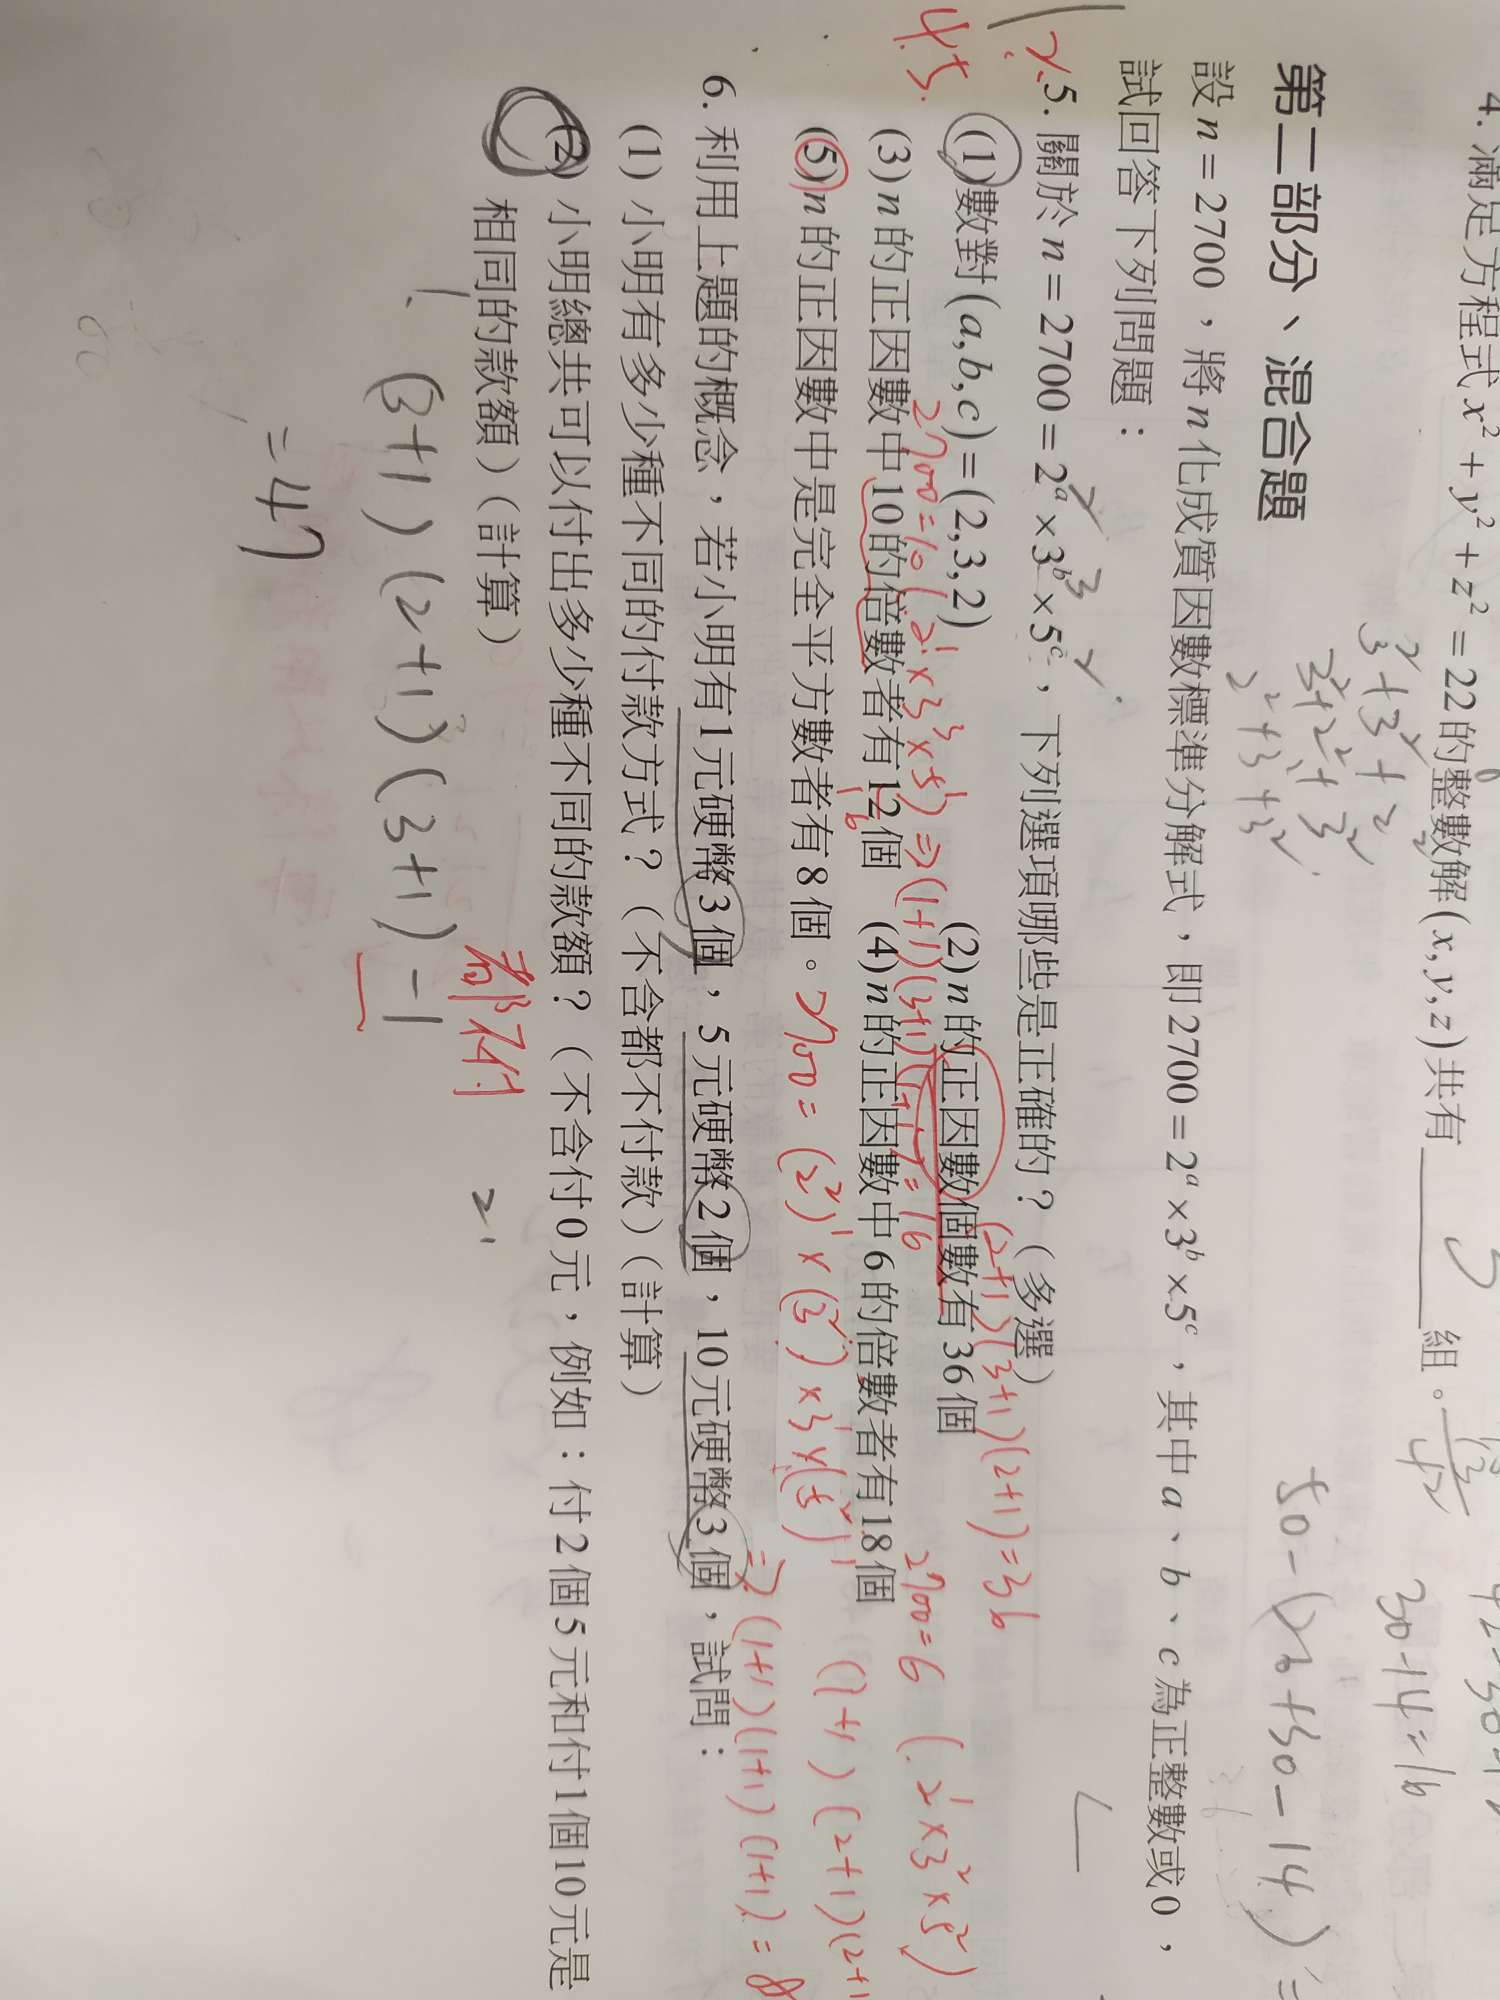 4. 滿足方程式 x² + y² + z² = 22 的整數解 (x, y, z) 共有 ______ 組。
30-14=16
3²+3²+2²
3²+2²+3²
2²+3²+3²
50-(20+30-14)=
第二部分、混合題
設 n = 2700，將 n 化成質因數標準分解式，即 2700 = 2ᵃ × 3ᵇ × 5ᶜ，其中 a、b、c 為正整數或 0，
試回答下列問題：
5. 關於 n = 2700 = 2ᵃ × 3ᵇ × 5ᶜ，下列選項哪些是正確的？（多選）
2 3 2
(2+1)(3+1)(2+1)=36
(1) 數對 (a, b, c) = (2, 3, 2) (2) n 的正因數個數有 36 個
45.
2700=10(2¹×3³×5¹)⇒(1+1)(3+1)(1+1)=16
2700=6(2¹×3²×5²)
(3) n 的正因數中 10 的倍數者有 12 個 (4) n 的正因數中 6 的倍數者有 18 個
16
(1+1)(2+1)(2+1
(5) n 的正因數中是完全平方數者有 8 個。
2700=(2²)¹×(3²)¹×3¹×(5²)¹
⇒(1+1)(1+1)(1+1)=8
6. 利用上題的概念，若小明有 1 元硬幣 3 個，5 元硬幣 2 個，10 元硬幣 3 個，試問：
(1) 小明有多少種不同的付款方式？（不含都不付款）（計算）
(2) 小明總共可以付出多少種不同的款額？（不含付 0 元，例如：付 2 個 5 元和付 1 個 10 元是
相同的款額）（計算）
都不付
1.
2.
(3+1)(2+1)(3+1)-1
=47